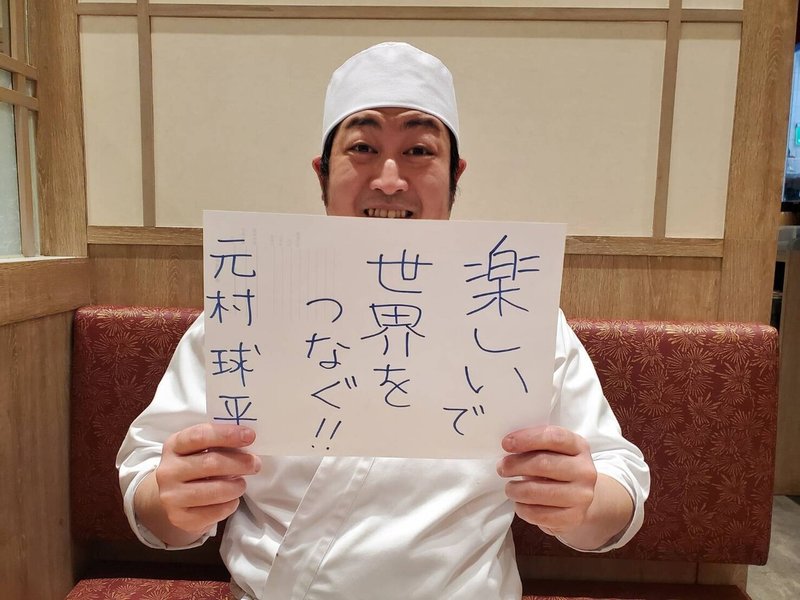 楽しいで
世界を
つなぐ!!
元村球平